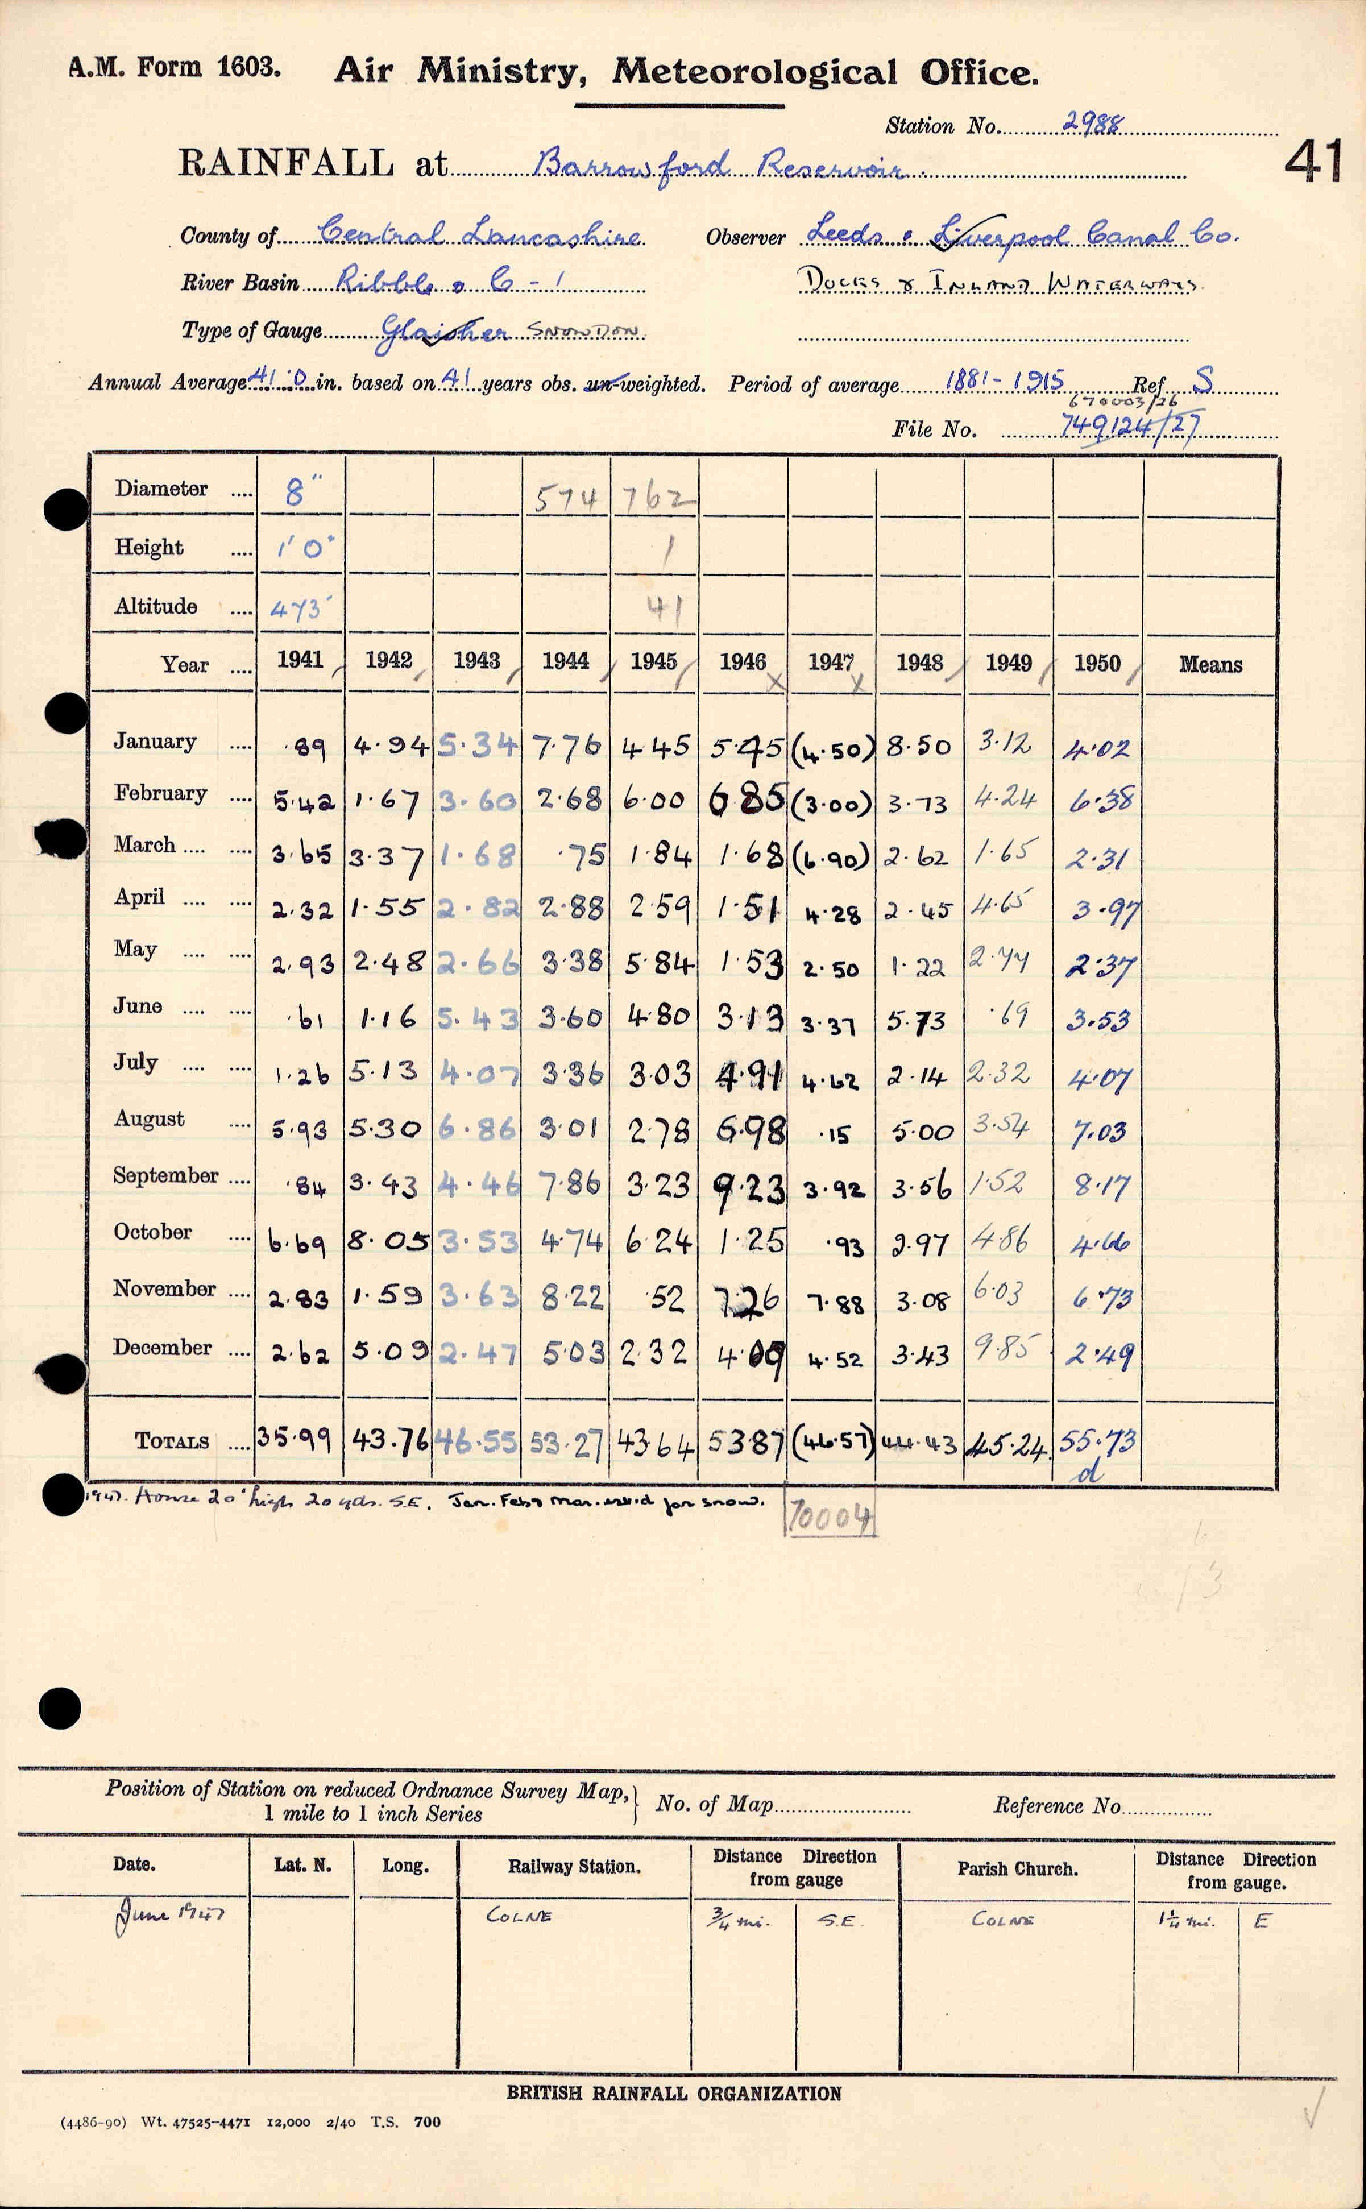 A.M. Form 1603. Air Ministry, Meteorological Office.
Station No. 2988
41
RAINFALL at Barrowford Reservoir.
County of Central Lancashire Observer Leeds & Liverpool Canal Co.
River Basin Ribble & C - 1 DOCKS & INLAND WATERWAYS
Type of Gauge Glaisher SNOWDON
Annual Average 41.0 in. based on 41 years obs. un-weighted. Period of average 1881-1915 Ref S
670003/26
File No. 749124/27
Diameter .... 8" 574 762
Height .... 1' 0" 1
Altitude .... 473' 41
Year .... 1941 1942 1943 1944 1945 1946 1947 1948 1949 1950 Means
x x
January .... .89 4.94 5.34 7.76 4.45 5.45 (4.50) 8.50 3.12 4.02
February .... 5.42 1.67 3.60 2.68 6.00 6.85 (3.00) 3.73 4.24 6.38
March .... .... 3.65 3.37 1.68 .75 1.84 1.68 (6.90) 2.62 1.65 2.31
April .... .... 2.32 1.55 2.82 2.88 2.59 1.51 4.28 2.45 4.65 3.97
May .... .... 2.93 2.48 2.66 3.38 5.84 1.53 2.50 1.22 2.77 2.37
June .... .... .61 1.16 5.43 3.60 4.80 3.13 3.37 5.73 .69 3.53
July .... .... 1.26 5.13 4.07 3.36 3.03 4.91 4.62 2.14 2.32 4.07
August .... 5.93 5.30 6.86 3.01 2.78 6.98 .15 5.00 3.54 7.03
September .... .84 3.43 4.46 7.86 3.23 9.23 3.92 3.56 1.52 8.17
October .... 6.69 8.05 3.53 4.74 6.24 1.25 .93 2.97 4.86 4.66
November .... 2.83 1.59 3.63 8.22 .52 7.26 7.88 3.08 6.03 6.73
December .... 2.62 5.09 2.47 5.03 2.32 4.09 4.52 3.43 9.85 2.49
TOTALS .... 35.99 43.76 46.55 53.27 43.64 53.87 (46.57) 44.43 45.24 55.73
d
1947. House 20' high 20 yds. S.E. Jan. Feb & Mar. est'd for snow.
70004
Position of Station on reduced Ordnance Survey Map,
1 mile to 1 inch Series
No. of Map Reference No.
Date. Lat. N. Long. Railway Station. Distance Direction from gauge Parish Church. Distance Direction from gauge.
June 1947 COLNE 3/4 mi. S.E. COLNE 1 1/4 mi. E
BRITISH RAINFALL ORGANIZATION
(4486-90) Wt. 47525-4471 12,000 2/40 T.S. 700